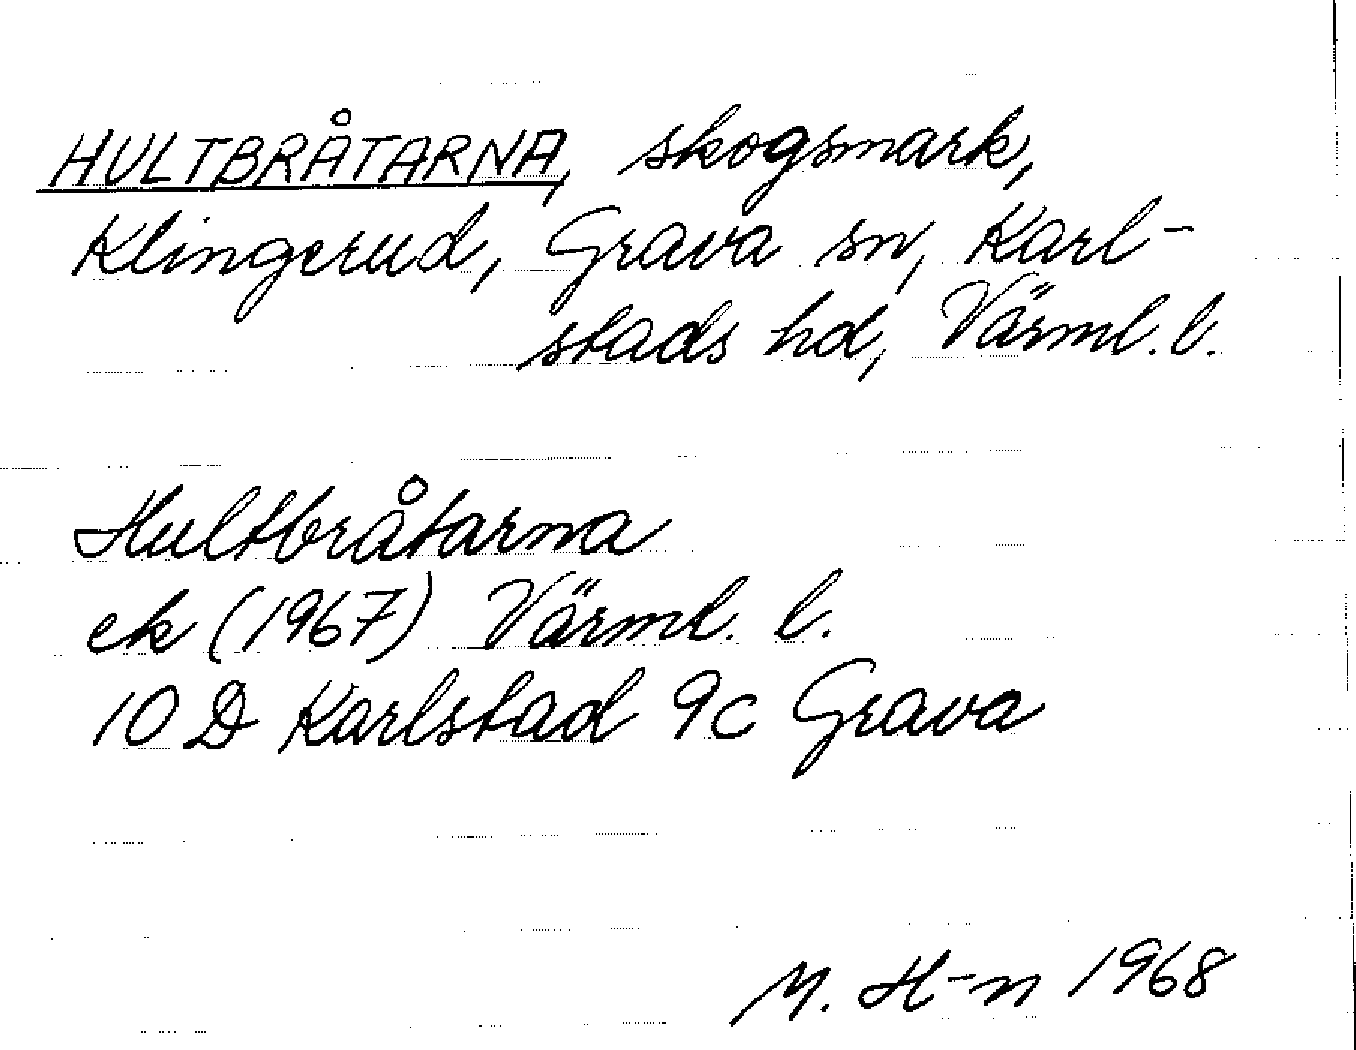 HULTBRÅTARNA, skogsmark,
Klingerud, Grava sn, Karl-
stads hd, Värml. l.
Hultbråtarna
ek (1967) Värml. l.
10 D Karlstad 9c Grava
M. H-n 1968